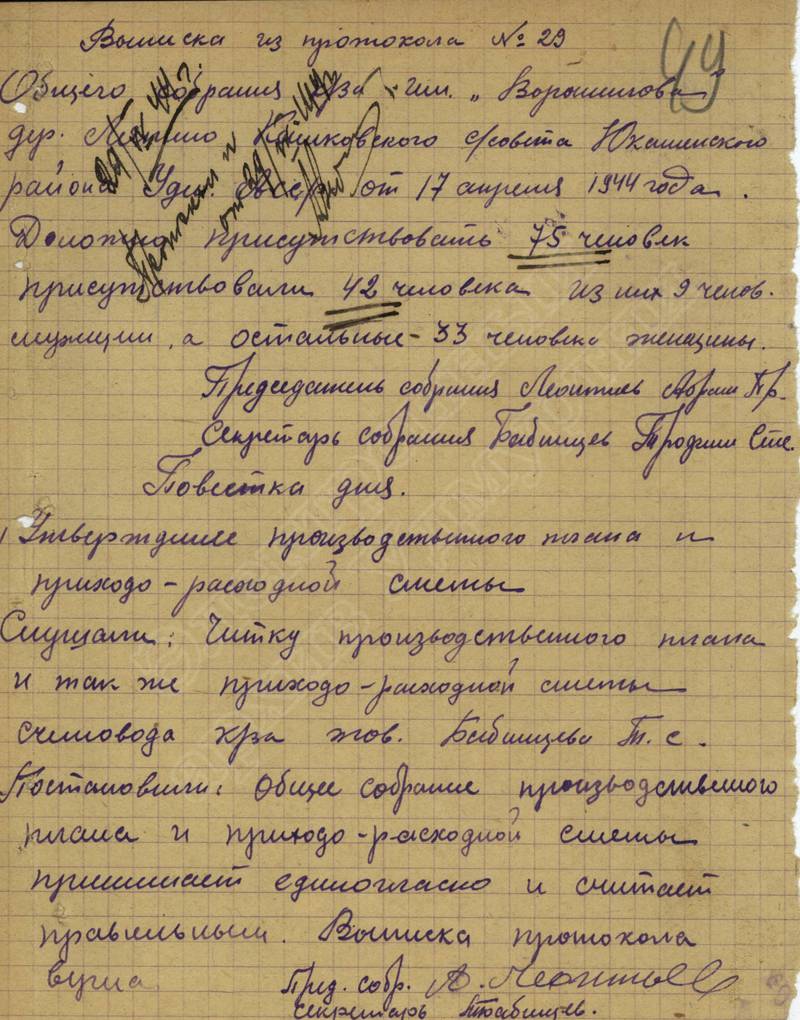 Выписка из протокола № 29
99
Общего собрания к-за им. „Ворошилова"
дер. Кошковского с/совета Юкаменского
района Удм. АССР от 17 апреля 1944 года.
Должно присутствовать 75 человек
присутствовали 42 человека из них 9 челов.
мужщин, а остальные - 33 человека женщины.
Председатель собрания Леонтьев Абрам Пр.
Секретарь собрания Бабинцев Трофим Сте.
Повестка дня.
Утверждение производственного плана и
приходо-расходной сметы
Слушали: Читку производственного плана
и так же приходо-расходной сметы
счетовода к-за тов. Бабинцева Т.С.
Постановили: Общее собрание производственного
плана и приходо-расходной сметы
принимает единогласно и считает
правильным. Выписка протокола
верна. Пред. собр. А. Леонтьев
секретарь Бабинцев.